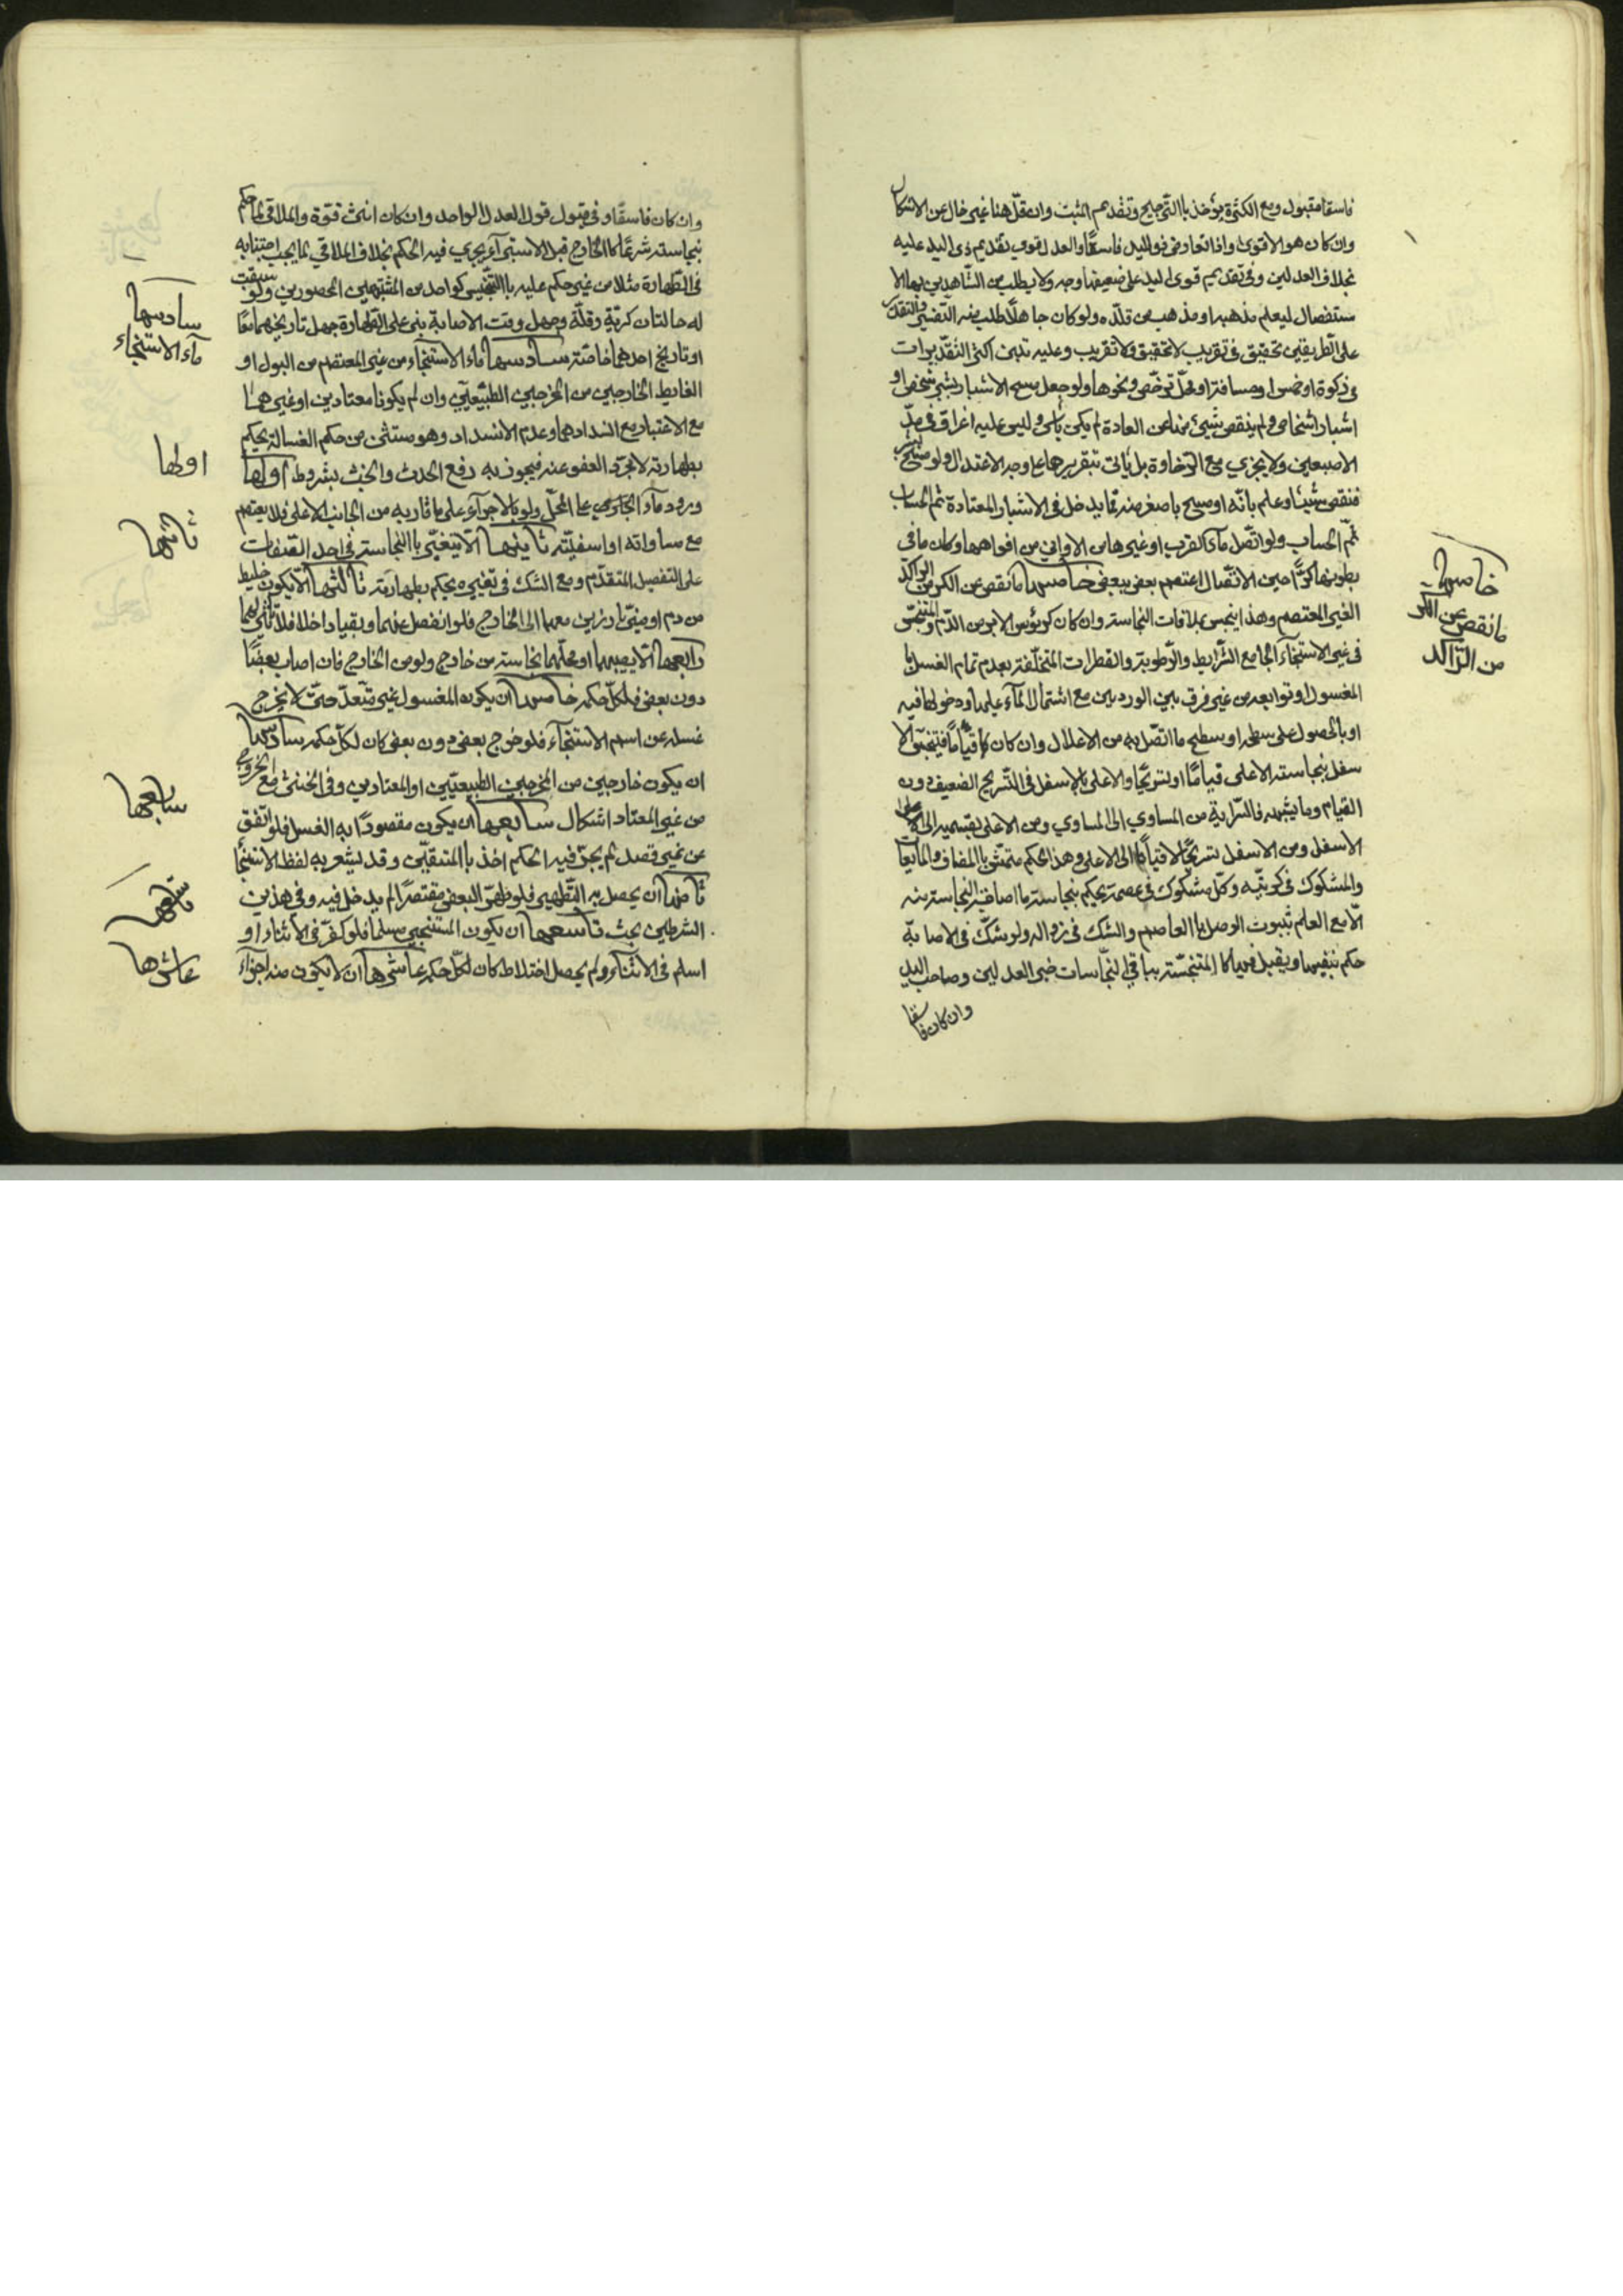 فاسقا مقبول ومع الكثرة يؤخذ باالترجيح وتقديم المثبت وان قلّ هنا غير خال عن الاشكال
وان كان هو الاقوى واذا تعارض ذو اليد فاسقًا والعدل قوي تقديم ذى اليد عليه
بخلاف العدلين وفى تقديم قوى اليد على ضعيفها وجه ولا يطلب من الشاهدين بها الا
ستفصال ليعلم مذهبه او مذهب من قلّده ولو كان جاهلًا طلب منه التفسير والتقدير
على الطريقين تحقيق فى تقريب لا تحقيق ولا تقريب وعليه تبنى اكثر التقديرات
فى زكوة او خمس او مسافة او محلّ ترخّص ونحوها ولو جعل مسح الاشبار بشبر شخص او
اشبار اشخاص ولم ينقص شيئ منها عن العادة لم يكن باس وليس عليه اغراق فى مدّ
الاصبعين ولا يجزي مع الرّخاوة بل ياتى بتقريرها على وجه الاعتدال ولو مسح
فنقص شيئا وعلم بانّه او مسح باصغر منه ممّا يدخل فى الاشبار المعتادة تم الحساب
تمّ الحساب ولو اتّصل ماء القرب او غيرها من الاواني من افواهها وكان ما فى
بطونها كرًّا حين الاتّصال اعتصم بعض ببعض خامسها ما نقص عن الكر من الراكد
الغير المعتصم وهذا ينجس بملاقات النجاسة وان كان كرؤس الابر من الدّم والمتنجّس
فى غير الاستنجاء الجامع الشرايط والرّطوبة والقطرات المتخلّفة بعد تمام الغسل با
المغسول او توابعه من غير فرق بين الوردين مع اشتمال الماء عليها ودخولها فيه
او بالحصول على سطحه او سطح ما اتّصل به من الاعلال وان كان قيامًا فيتنجّس الا
سفل بنجاسة الاعلى قيامًا او تسريحًا والاعلى بالاسفل فى التّسريح الضعيف دون
القيام وما يشبهه فالسّراية من المساوي الى المساوي ومن الاعلى بقسميه الى
الاسفل ومن الاسفل تسريحًا لا قيامًا الى الاعلى وهذا الحكم متمشّ باالمضاف والمايعات
والمشكوك فى كريّته وكلّ مشكوك فى عصمته يحكم بنجاسته ما اصابته النجاسة منه
الّا مع العلم بثبوت الوصل باا لعاصم والشك فى زواله ولو شكّ فى الاصابة
حكم بنفيها ويقبل فيها كا المتنجّسة بباقي النجاسات خبر العدلين وصاحب اليد
وان كان فاسقا
خامسها
ما نقص عن الكر
من الرّاكد
وان كان فاسقًا وفى قبول قول العدل الواحد وان كان انثى قوّة والملاقى لما حكم
بنجاسته شرعًا كا الخارج قبل الاستبرآء يجرى فيه الحكم بخلاف الملاقي لما يجب اجتنابه
فى الطّهارة مثلا من غير حكم عليه باالتنجيس كواحد من المشتبهين المحصورين ولو سبقت
له حالتان كريّة وقلّة وجهل وقت الاصابة بنى على الطّهارة جهل تاريخهما معًا
او تاريخ احدهما خاصّة سادسها ماء الاستنجاء من غير المعتصم من البول او
الغايط الخارجين من المخرجين الطّبيعيّين وان لم يكونا معتادين او غيرهما
مع الاعتياد مع انسدادهما وعدم الانسداد وهو مستثنى من حكم الغسالة يحكم
بطهارته لا بمجرّد العفو عنه فيجوز به رفع الحدث والخبث بشروط اولها
ورود ماء الجاري على المحلّ ولو بالاجرآء على ما قاربه من الجانب الاعلى فلا يعتصم
مع مساواته او اسفليّته ثانيها الّا يتغيّر باالنجاسة فى احد الصّفات
على التفصيل المتقدّم ومع الشك فى تغييره يحكم بطهارته ثالثها الّا يكون خليط
من دم او منيّ بارزين معهما الى الخارج فلو انفصل عنهما وبقيا داخلا فلا تاثير لهما
رابعها الّا يصيبهما او محلّهما نجاسة من خارج ولو من الخارج فان اصاب بعضًا
دون بعض فلكلّ حكمه خامسها ان يكون المغسول غير متعدّ حتّى لا يخرج
غسله عن اسم الاستنجاء فلو خرج بعض دون بعض كان لكلّ حكمه سادسها
ان يكون خارجين من المخرجين الطبيعيّين او المعتادين وفى الخنثى مع الخروج
من غير المعتاد اشكال سابعها ان يكون مقصودًا به الغسل فلو اتّفق
من غير قصد لم يجر فيه الحكم اخذ باالمتيقّن وقد يشعر به لفظ الاستنجا
ثامنها ان يحصل به التّطهير فلو طهّر البعض مقتصرًا لم يدخل فيه وفى هذين
الشرطين بحث تاسعها ان يكون المستنجي مسلما فلو كفر فى الاثناء او
اسلم فى الاثناء ولم يحصل اختلاط كان لكلّ حكمه عاشرها ان لا يكون منه اجزآء
سادسها
مآء الاستنجاء
اولها
ثانيها
سابعها
تاسعها
عاشرها